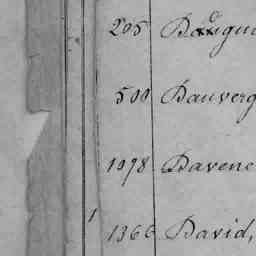 205 Baugu
500 Bauverg
1078 Bavene
1
1366 Bavid,